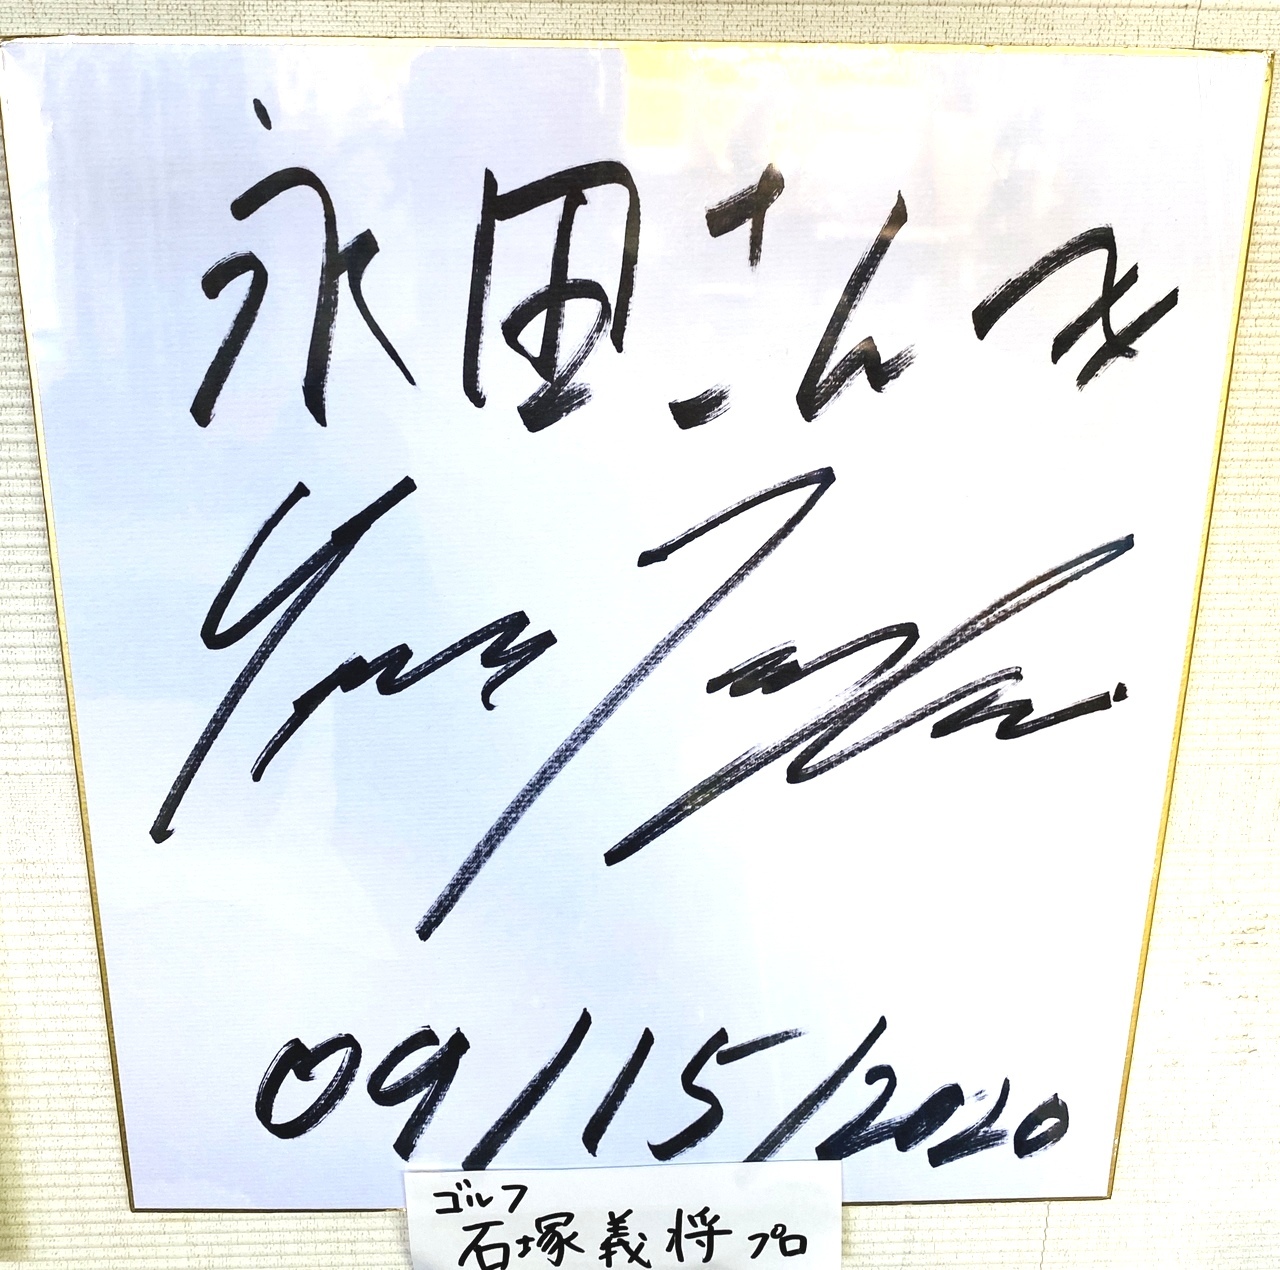 永田さんへ
09/15/2020
ゴルフ
石塚義将プロ